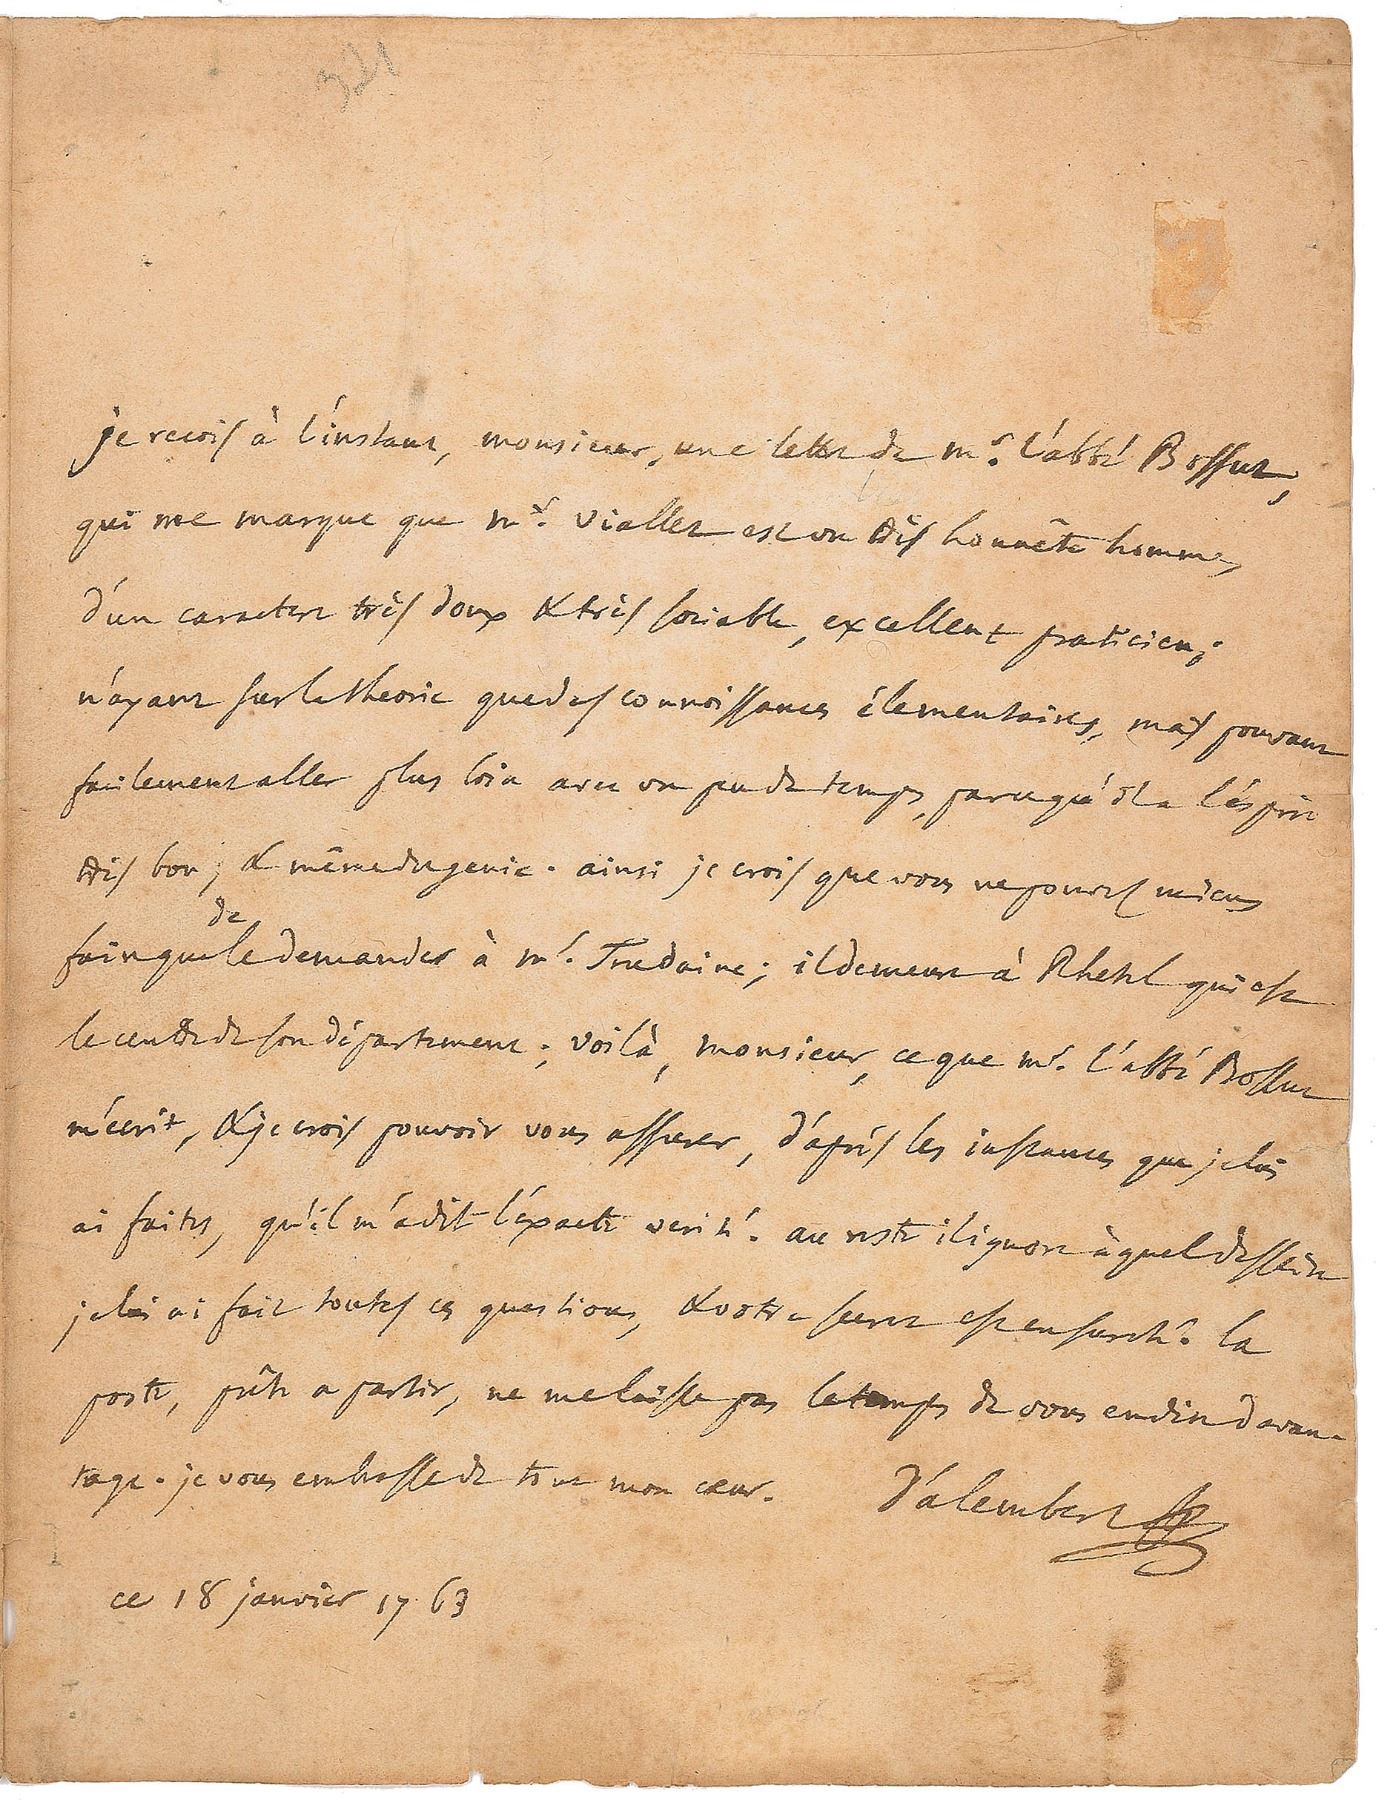 321
je reçois à l'instant, monsieur, une lettre de mr. l'abbé Bossut,
qui me marque que mr. viallet est un très honnête homme,
d'un caractere très doux & très sociable, excellent praticien,
n'ayant sur la theorie que des connoissances élementaires, mais pouvant
facilement aller plus loin avec un peu de temps, parcequ'il a l'esprit
très bon, & même du genie. ainsi je crois que vous ne pouvez mieux
faire que de le demander à mr. Trudaine; il demeure à Rhetel qui est
le centre de son département; voilà, monsieur, ce que mr. l'abbé Bossut
m'écrit, & je crois pouvoir vous assurer, d'après les instances que je lui
ai faites, qu'il m'a dit l'exacte verité. au reste il ignore à quel dessein
je lui ai fait toutes ces questions, & votre secret est en sureté. la
poste, prête a partir, ne me laisse pas le temps de vous en dire davan-
tage. je vous embrasse de tout mon cœur. D'alembert
ce 18 janvier 1763